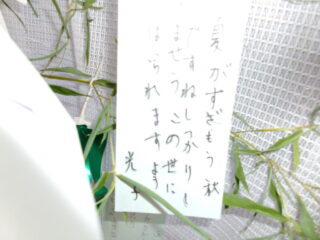 夏がすぎもう秋
ですねしっかりし
ませうこの世に
はられますよう
光子